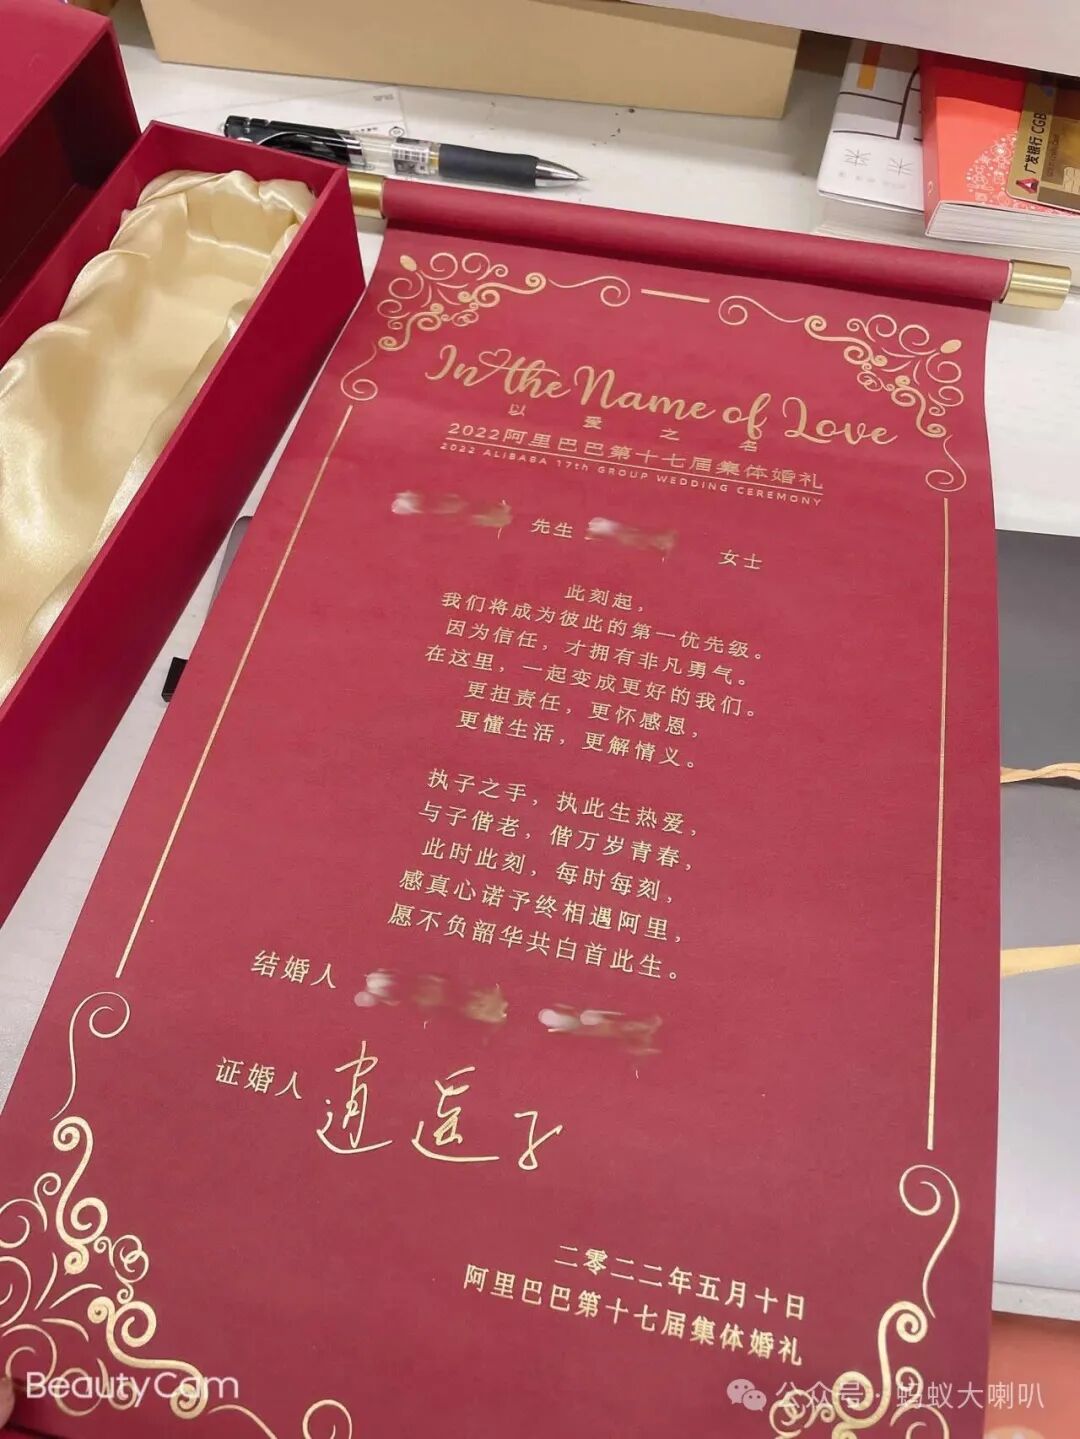 广发银行 CGB
In the Name of Love
以爱之名
2022阿里巴巴第十七届集体婚礼
2022 ALIBABA 17th GROUP WEDDING CEREMONY
先生 女士
此刻起，
我们将成为彼此的第一优先级。
因为信任，才拥有非凡勇气。
在这里，一起变成更好的我们。
更担责任，更怀感恩，
更懂生活，更解情义。
执子之手，执此生热爱，
与子偕老，偕万岁青春，
此时此刻，每时每刻，
感真心诺予终相遇阿里，
愿不负韶华共白首此生。
结婚人
证婚人 逍遥子
二零二二年五月十日
阿里巴巴第十七届集体婚礼
BeautyCam
公众号·蚂蚁大喇叭